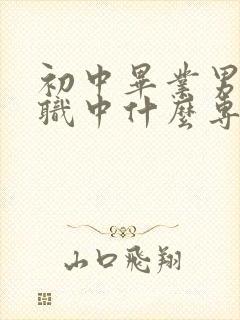 初中畢業男
職中什麼專
山口飛翔